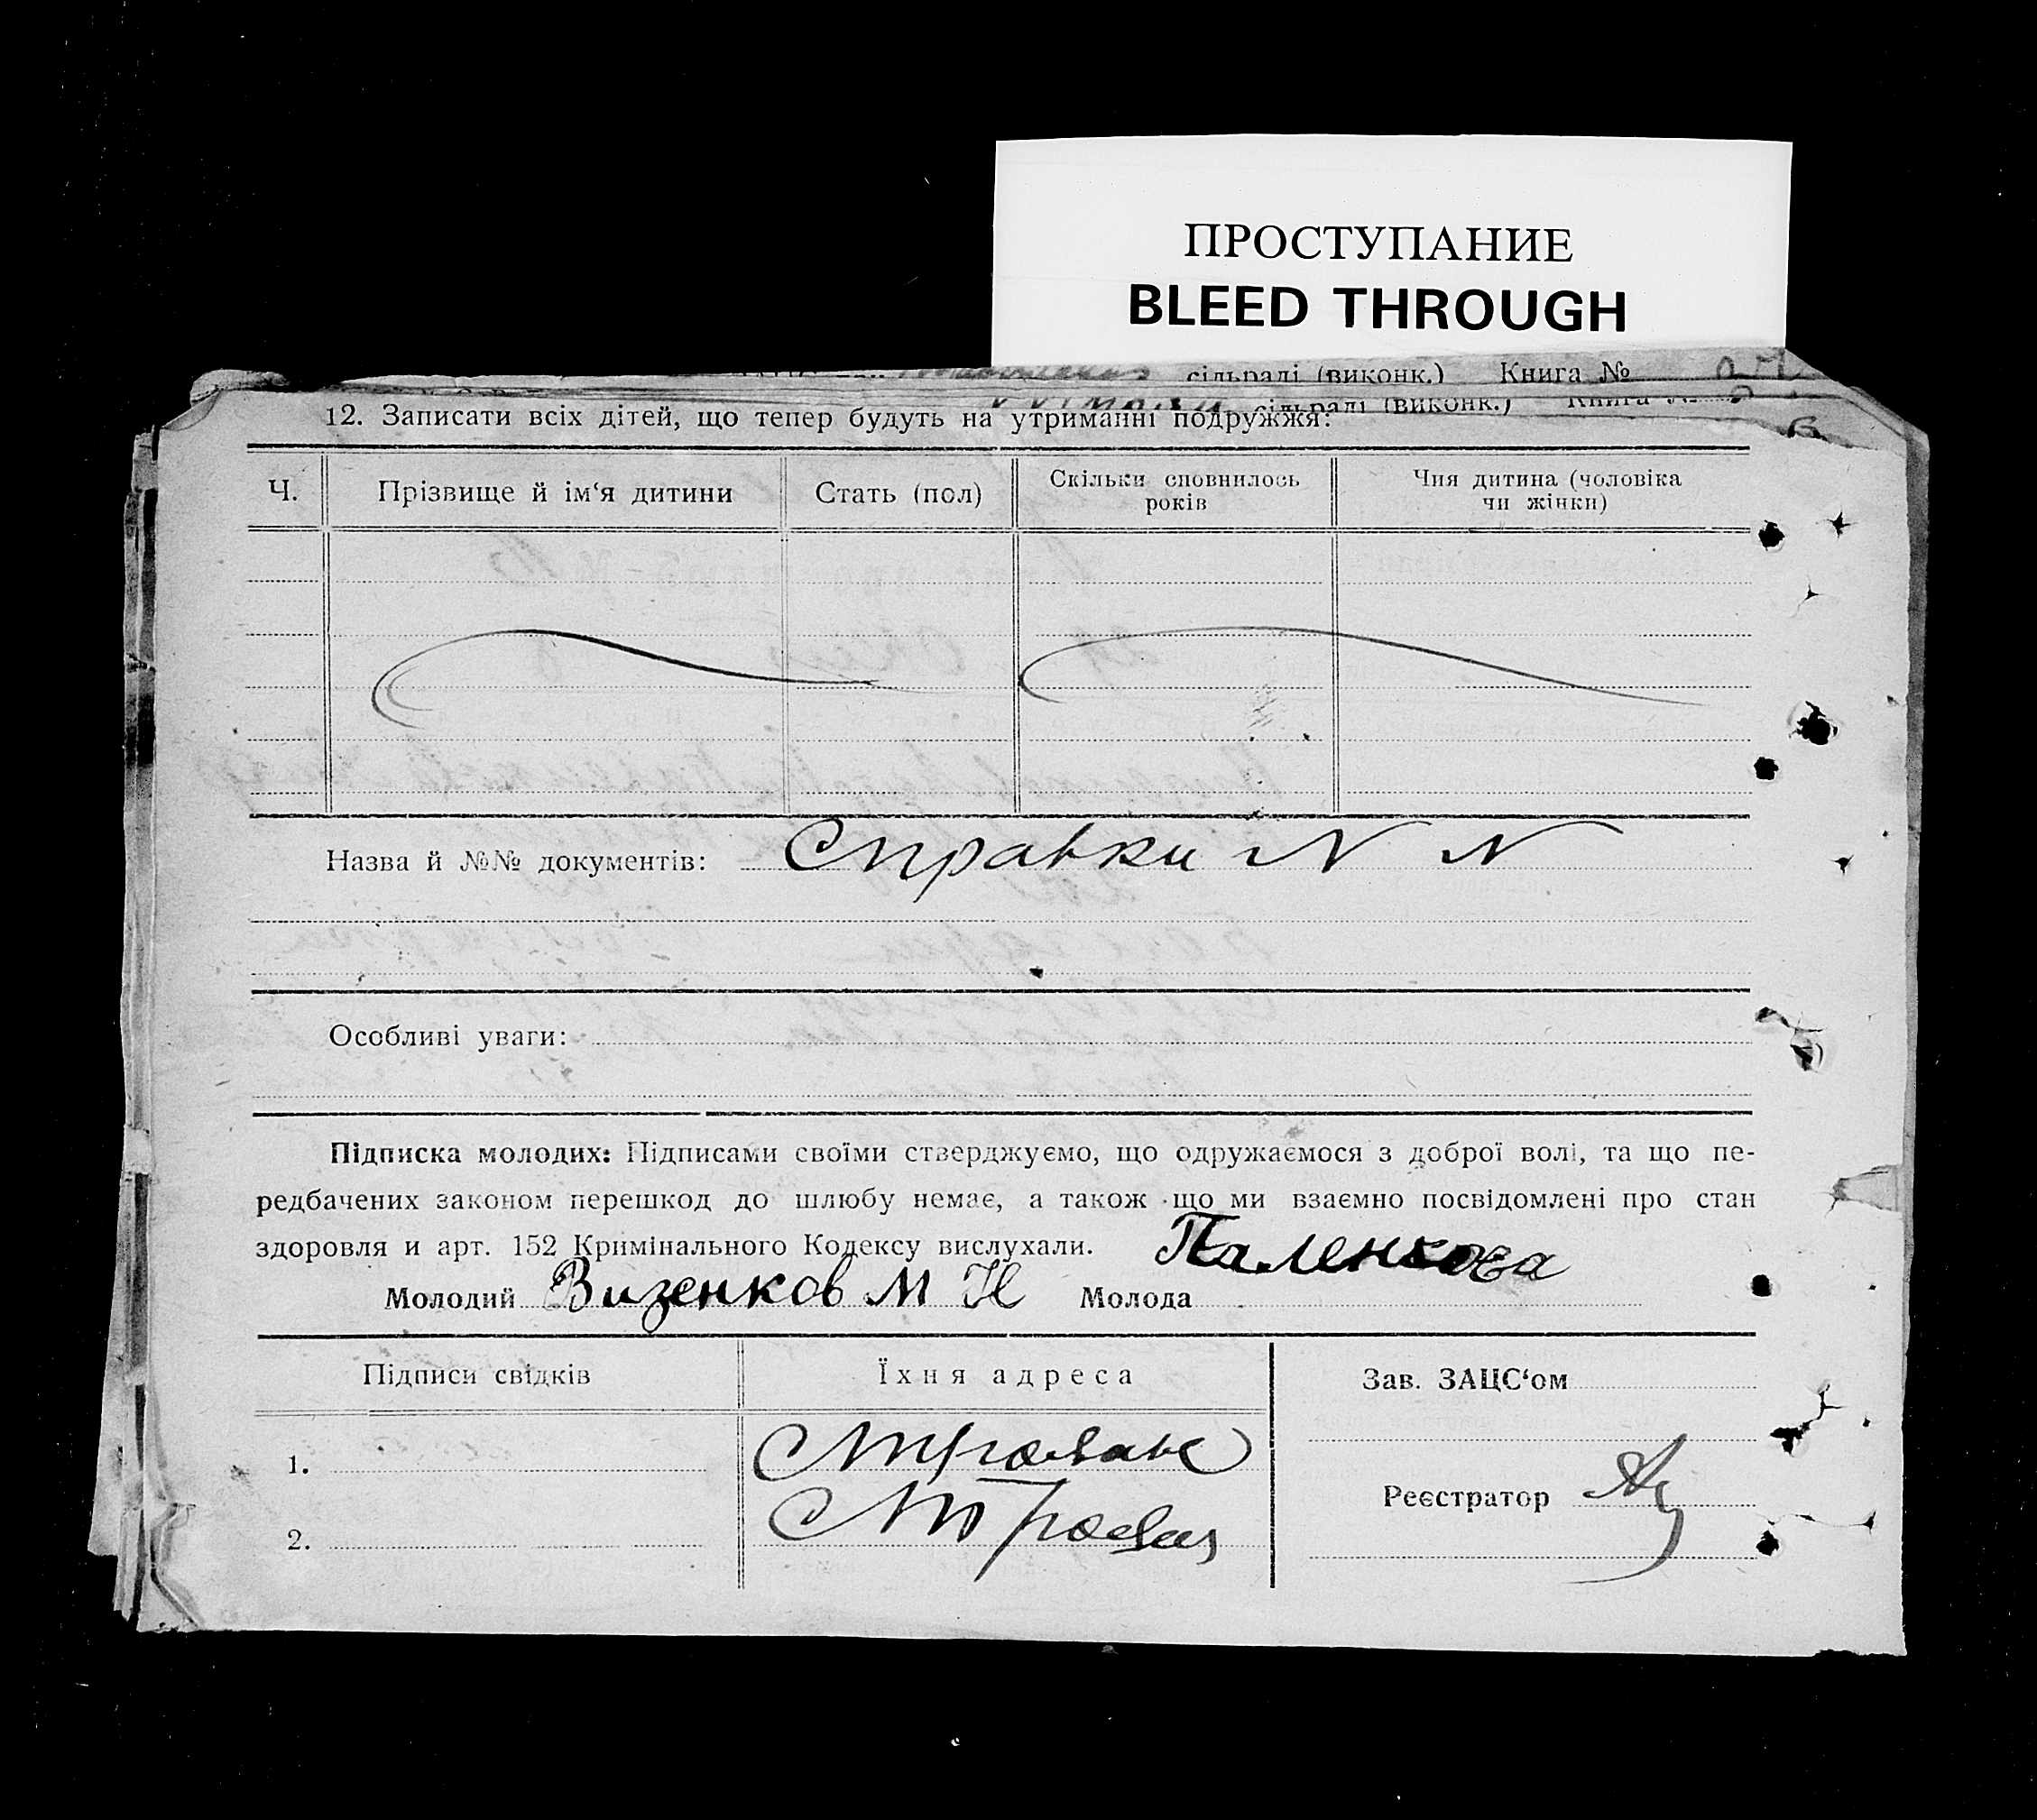 ПРОСТУПАНИЕ
BLEED THROUGH
сільраді (виконк.) Книга № 27
сільраді (виконк.) Книга №
12. Записати всіх дітей, що тепер будуть на утриманні подружжя:
Ч. Прізвище й ім‘я дитини Стать (пол) Скільки сповнилось років Чия дитина (чоловіка чи жінки)
Назва й №№ документів: Справки N N
Особливі уваги:
Підписка молодих: Підписами своїми стверджуємо, що одружаємося з доброї волі, та що пе-
редбачених законом перешкод до шлюбу немає, а також що ми взаємно посвідомлені про стан
здоровля и арт. 152 Кримінального Кодексу вислухали.
Паленкова
Молодий Визенков М Н Молода
Підписи свідків Їхня адреса Зав. ЗАЦС‘ом
1.
Реєстратор
2.